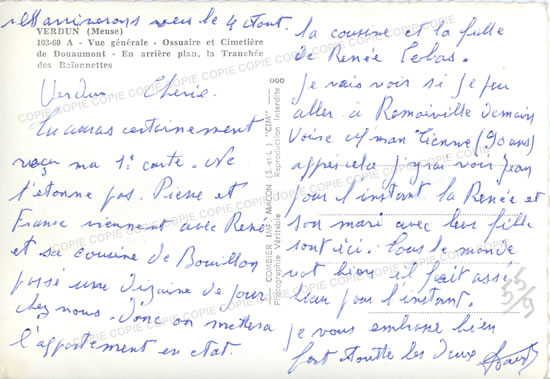 arriverons vers le 4 Aout.
VERDUN (Meuse)
103-60 A - Vue générale - Ossuaire et Cimetière
de Douaumont - En arrière plan, la Tranchée
des Baïonnettes
Verdun Cherie.
Tu auras certainement
reçu ma 1e carte. Ne
t'etonne pas. Pierre et
France viennent avec Renée
et sa cousine de Bouillon
passé une dizaine de jour
chez nous. donc on mettera
l'appartement en etat.
COMBIER IMP. MACON (S.-et-L.) "CIM"
Photographie Véritable Reproduction Interdite
la cousine et la fille
de Renée
je vais voir si je peu
aller à Romainville demain
voire man Tienne (90 ans)
apprecela j'y rai voir Jean
pour l'instant la Renée et
son mari avec leur fille
sont ici. Tous le monde
vat bien il fait assé
beau pour l'instant.
je vous embrasse bien
fort toutte les deux
COPIE COPIE COPIE COPIE COPIE COPIE